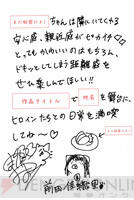 まだ秘密だよ！ちゃんは隣にいてくれる
安心感、親近感がピカイチ♡
とってもかわいいのはもちろん、
ドキッとしてしまう距離感を
ぜひ楽しんでほしい!!
作品タイトル で 地名 を舞台に、
ヒロインたちとの日常を満喫
してね〜♡
まだ秘密だよ！
前田佳織里